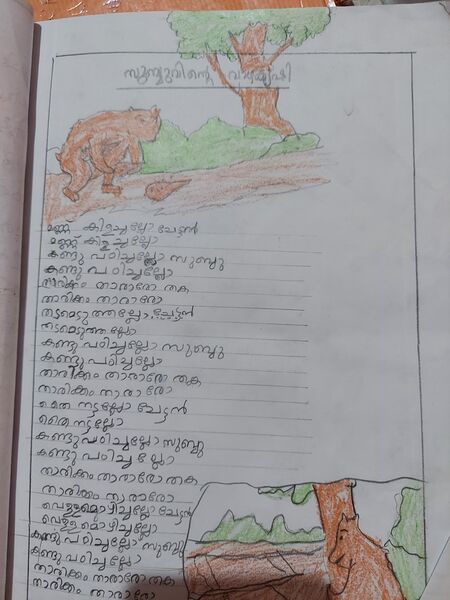 സുബ്ബുവിന്റെ വാഴകൃഷി
മണ്ണ് കിളച്ചല്ലോ ചേട്ടൻ
മണ്ണ് കിളച്ചല്ലോ
കണ്ടു പഠിച്ചല്ലോ സുബ്ബു
കണ്ടു പഠിച്ചല്ലോ
താരിക്കം താരാരോ തക
താരിക്കം താരാരോ
തടമെടുത്തല്ലോ, ചേട്ടൻ
തടമെടുത്തല്ലോ
കണ്ടു പഠിച്ചല്ലോ സുബ്ബു
കണ്ടു പഠിച്ചല്ലോ
താരിക്കം താരാരോ തക
താരിക്കം താരാരോ
തൈ നട്ടല്ലോ ചേട്ടൻ
തൈ നട്ടല്ലോ
കണ്ടു പഠിച്ചല്ലോ സുബ്ബു
കണ്ടു പഠിച്ചല്ലോ
താരിക്കം താരാരോ തക
താരിക്കം താരാരോ
വെള്ളമൊഴിച്ചല്ലോ ചേട്ടൻ
വെള്ളമൊഴിച്ചല്ലോ
കണ്ടു പഠിച്ചല്ലോ സുബ്ബു
കണ്ടു പഠിച്ചല്ലോ
താരിക്കം താരാരോ തക
താരിക്കം താരാരോ